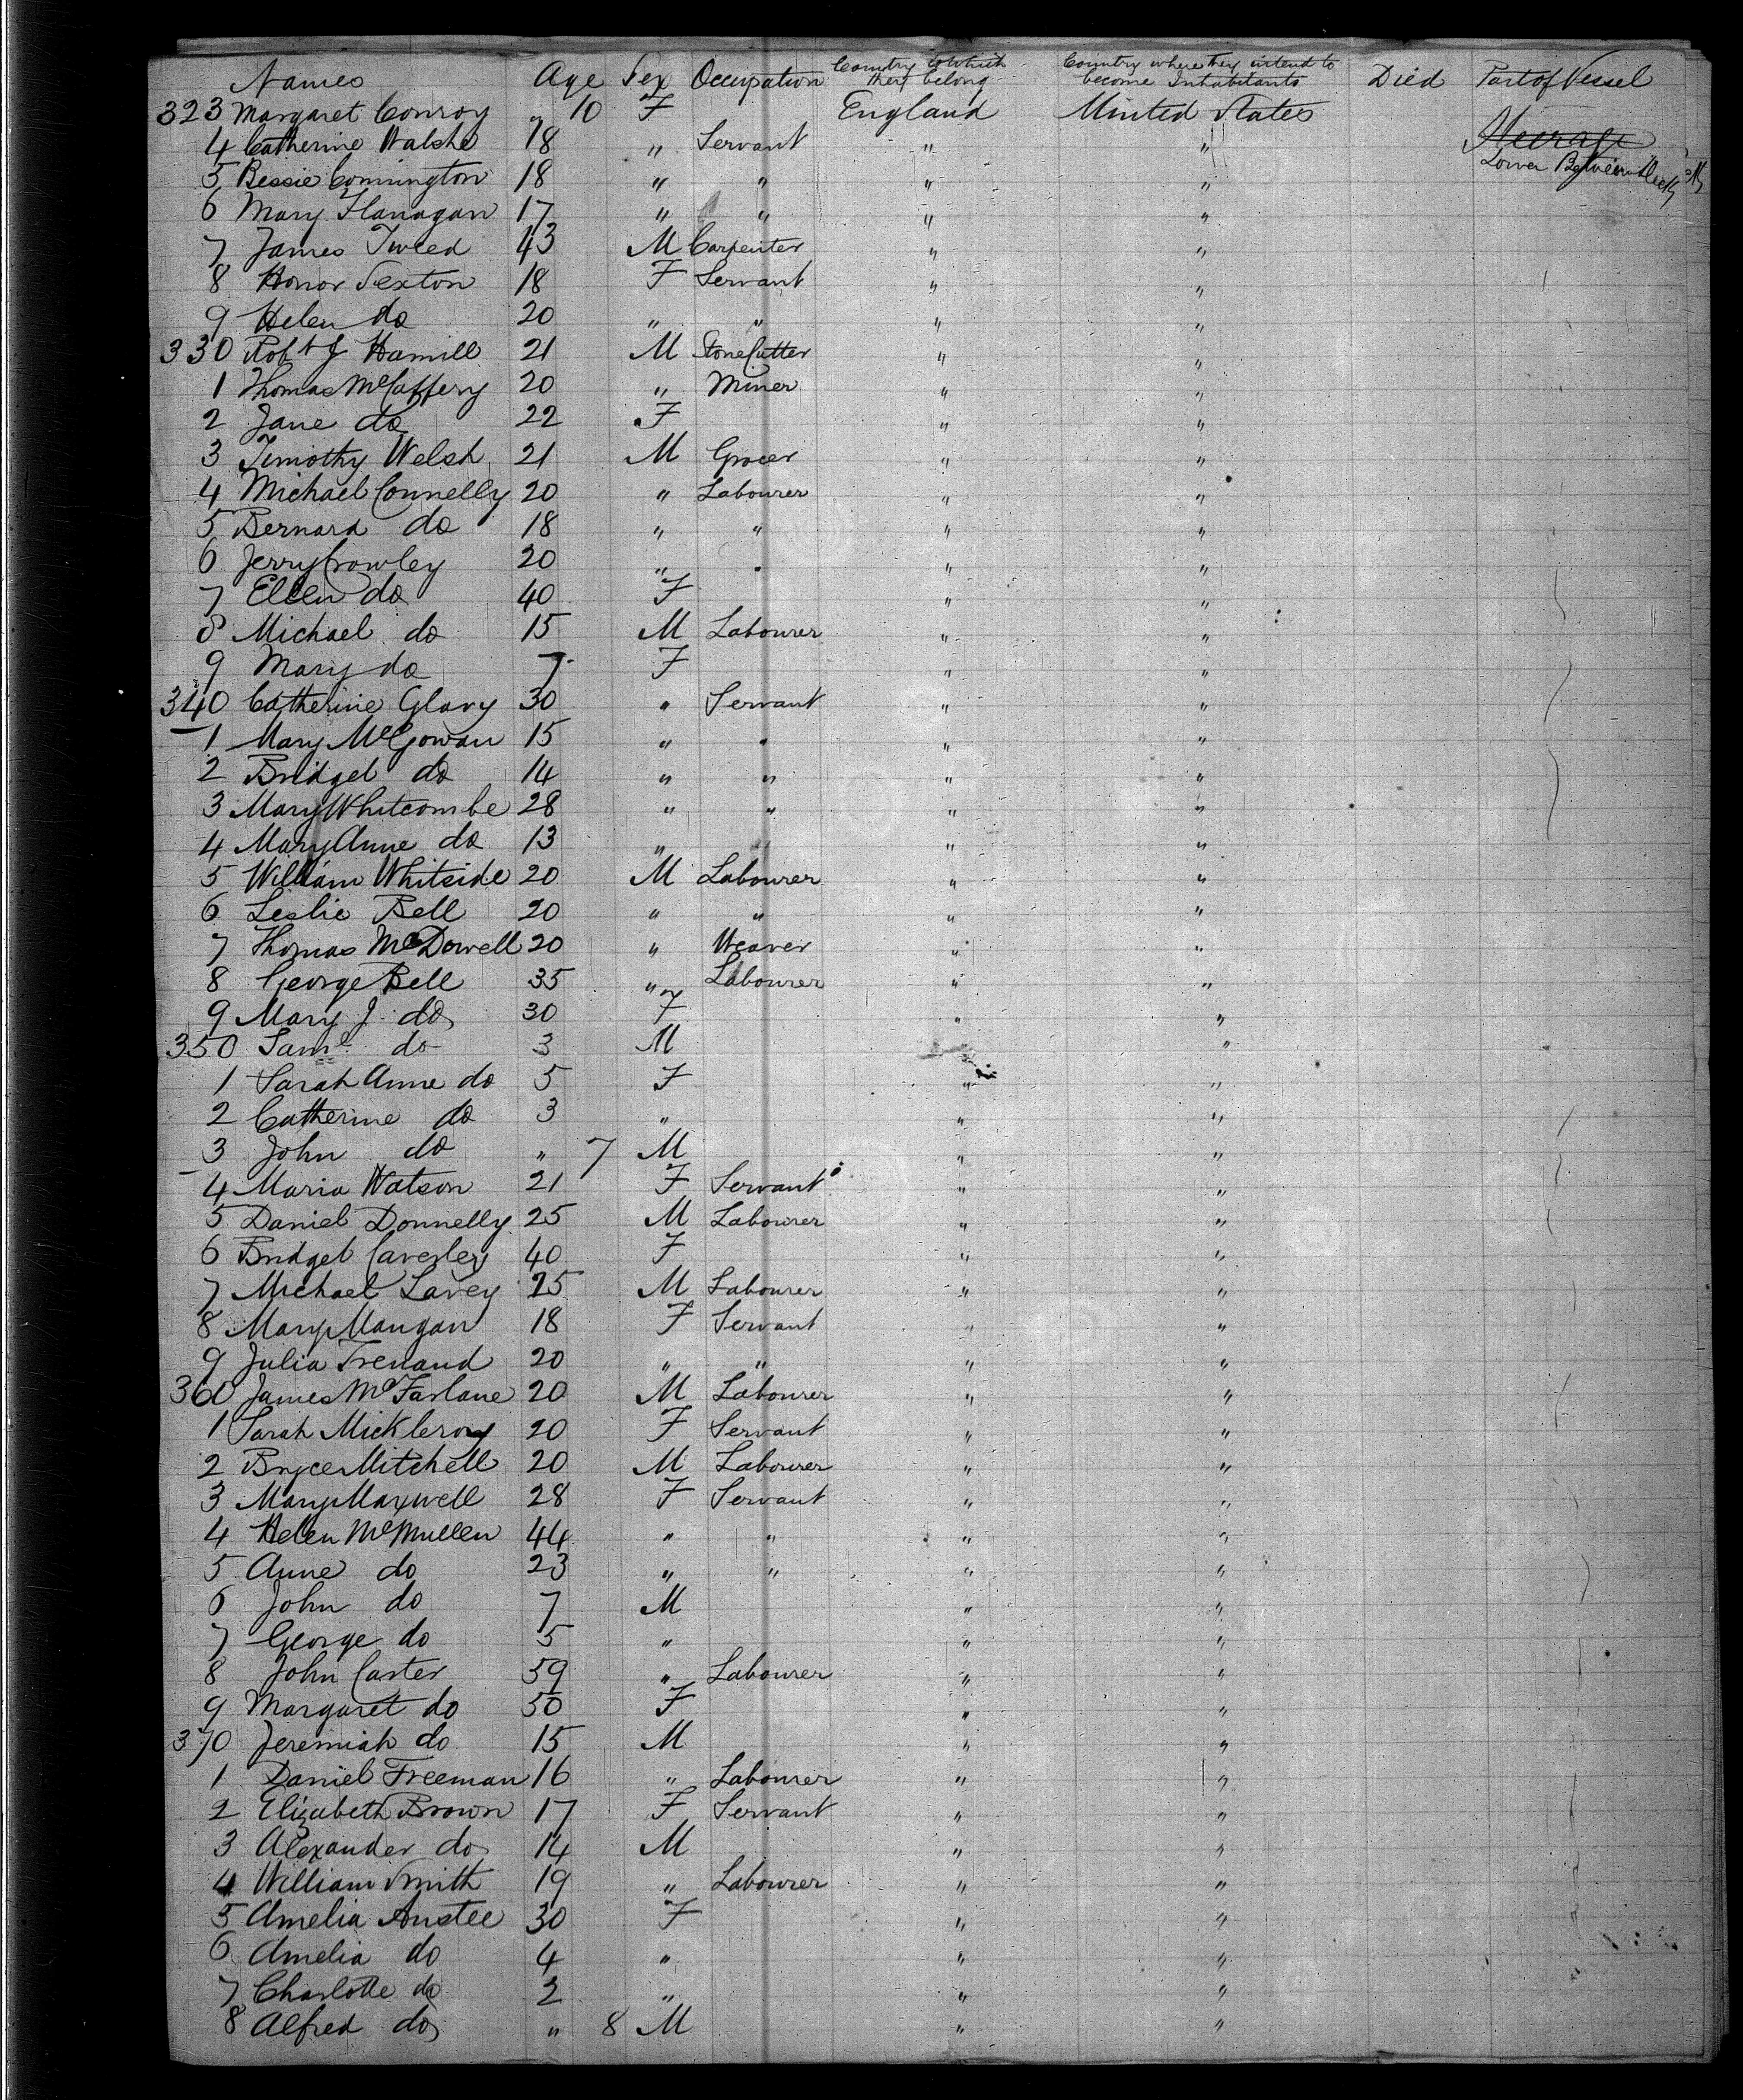 Names Age Sex Occupation Country to which they belong Country where they intend to become Inhabitants Died Part of Vessel
323 Margaret Conroy " 10 F England United States
Steerage
4 Catherine Walshe 18 " Servant " "
Lower Between Decks
5 Bessie Connington 18 " " " "
6 Mary Flanagan 17 " " " "
7 James Tweed 43 M Carpenter " "
8 Honor Sexton 18 F Servant " "
9 Helen do 20 " " " "
330 Robt J Hamill 21 M Stone Cutter " "
1 Thomas McCaffery 20 " Miner " "
2 Jane do 22 F " "
3 Timothy Welsh 21 M Grocer " "
4 Michael Connelly 20 " Labourer " "
5 Bernard do 18 " " " "
6 Jerry Crowley 20 " " " "
7 Ellen do 40 F " "
8 Michael do 15 M Labourer " "
9 Mary do 7 F " "
340 Catherine Glavy 30 " Servant " "
1 Mary McGowan 15 " " " "
2 Bridget do 14 " " " "
3 Mary Whitcombe 28 " " " "
4 Mary Anne do 13 " " " "
5 William Whitside 20 M Labourer " "
6 Leslie Bell 20 " " " "
7 Thomas McDowell 20 " Weaver " "
8 George Bell 35 " Labourer " "
9 Mary J. do 30 F " "
350 Saml do 3 M "
1 Sarah Anne do 5 F " "
2 Catherine do 3 " " "
3 John do " 7 M " "
4 Maria Watson 21 F Servant " "
5 Daniel Donnelly 25 M Labourer " "
6 Bridget Caverley 40 F " "
7 Michael Lavey 25 M Labourer " "
8 Mary Mangan 18 F Servant " "
9 Julia Trenaud 20 " " " "
360 James McFarlane 20 M Labourer " "
1 Sarah Mickleroy 20 F Servant " "
2 Bryce Mitchell 20 M Labourer " "
3 Mary Maxwell 28 F Servant " "
4 Helen McMullen 44 " " " "
5 Anne do 23 " " " "
6 John do 7 M " "
7 George do 5 " " "
8 John Carter 59 " Labourer " "
9 Margaret do 50 F " "
370 Jeremiah do 15 M " "
1 Daniel Freeman 16 " Labourer " "
2 Elizabeth Brown 17 F Servant " "
3 Alexander do 14 M " "
4 William Smith 19 " Labourer " "
5 Amelia Anstee 30 F " "
6 Amelia do 4 " " "
7 Charlotte do 2 " " "
8 Alfred do " 8 M " "